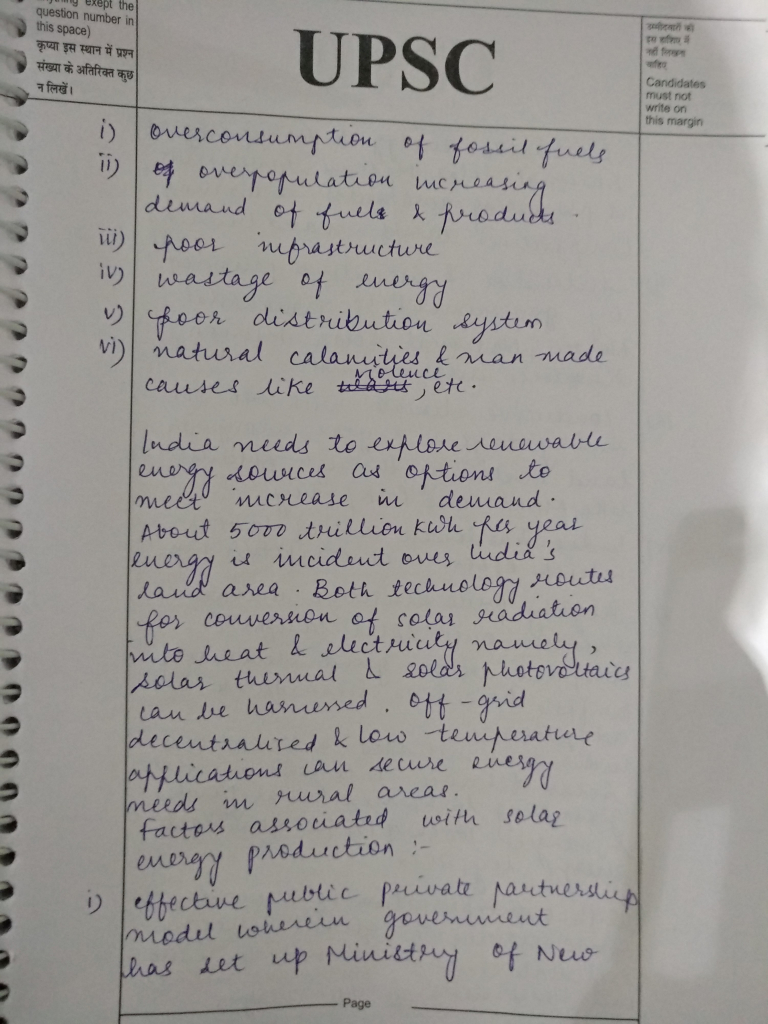 exept the
question number in
this space)
कृप्या इस स्थान में प्रश्न
संख्या के अतिरिक्त कुछ
न लिखें।
UPSC
उम्मीदवारों को
इस हाशिए में
नहीं लिखना
चाहिए
Candidates
must not
write on
this margin
i) overconsumption of fossil fuels
ii) overpopulation increasing
demand of fuels & products.
iii) poor infrastructure
iv) wastage of energy
v) poor distribution system
vi) natural calamities & man made
causes like violence, etc.
India needs to explore renewable
energy sources as options to
meet increase in demand.
About 5000 trillion kWh per year
energy is incident over India's
land area. Both technology routes
for conversion of solar radiation
into heat & electricity namely,
solar thermal & solar photovoltaics
can be harnessed. Off-grid
decentralised & low-temperature
applications can secure energy
needs in rural areas.
Factors associated with solar
energy production :-
i) effective public private partnership
model wherein government
has set up Ministry of New
Page